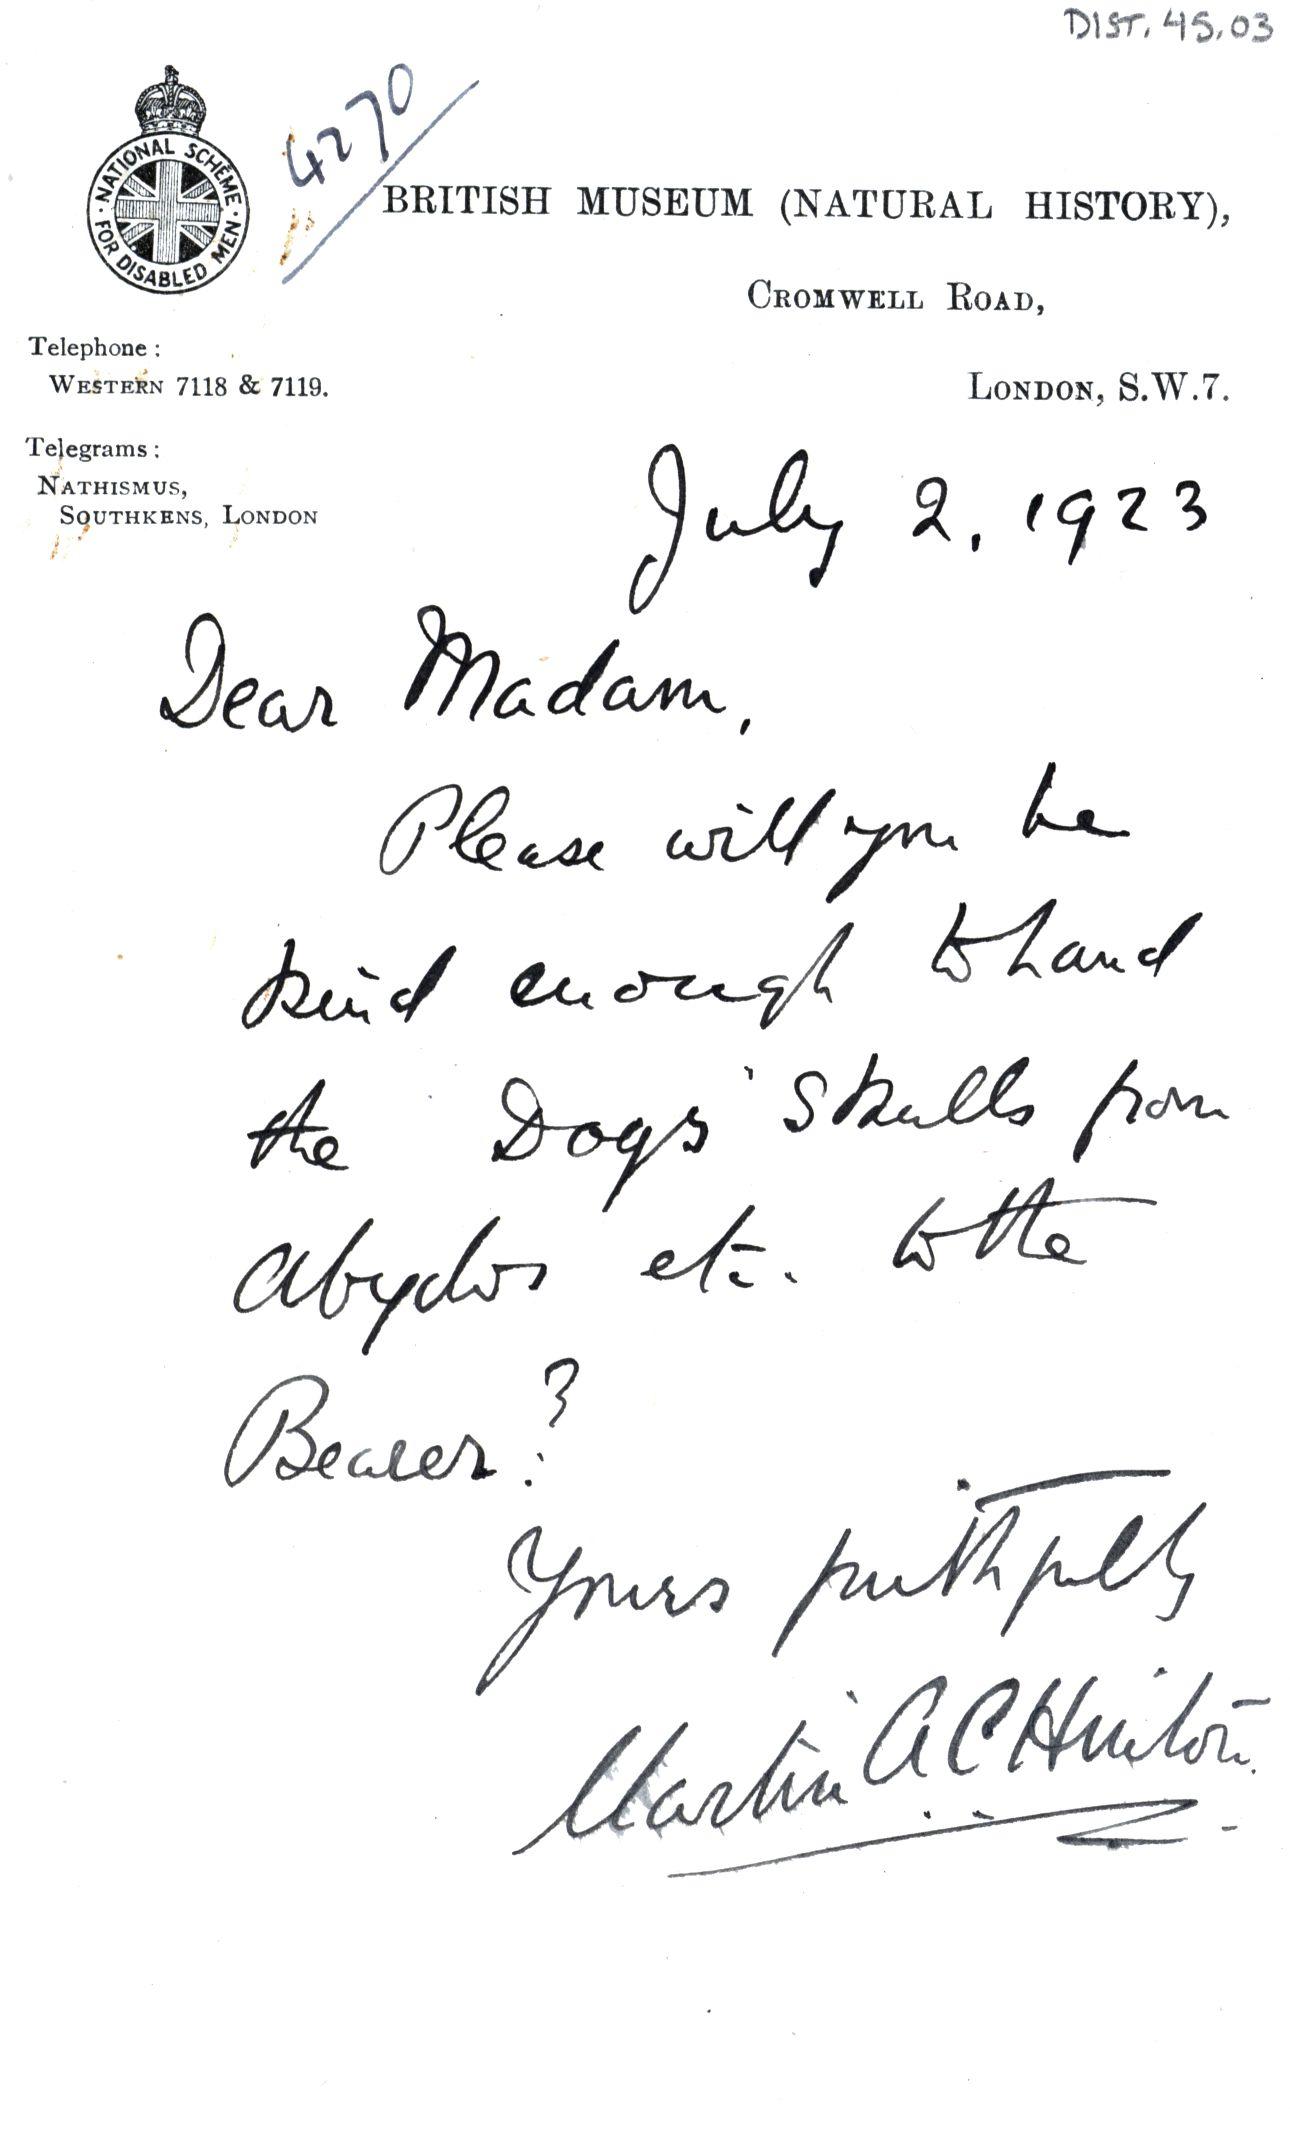 DIST. 45.03
4270
NATIONAL SCHEME
· FOR DISABLED MEN ·
BRITISH MUSEUM (NATURAL HISTORY),
CROMWELL ROAD,
LONDON, S.W.7.
Telephone:
WESTERN 7118 & 7119.
Telegrams:
NATHISMUS,
SOUTHKENS, LONDON
July 2, 1923
Dear Madam,
Please will you be
kind enough to hand
the Dogs' Skulls from
Abydos etc. to the
Bearer?
Yours faithfully
Martin A C Hinton